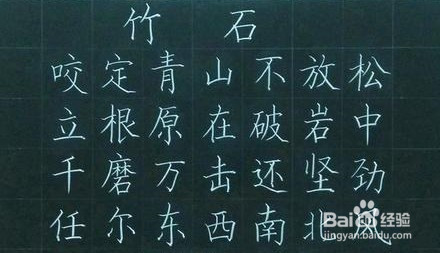 竹石
咬定青山不放松
立根原在破岩中
千磨万击还坚劲
任尔东西南北风
Baidu经验
jingyan.baidu.com